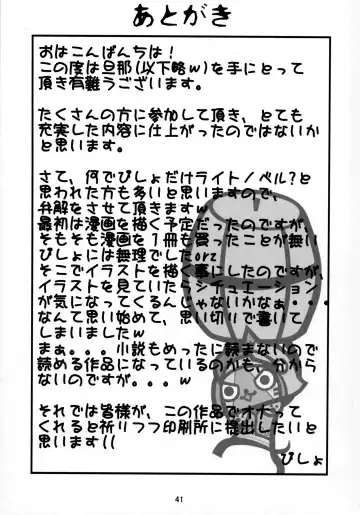 あとがき
おはこんばんちは！
この度は旦那(以下略w)を手にとって
頂き有難うございます。
たくさんの方に参加して頂き、とても
充実した内容に仕上がったのではないか
と思います。
さて、何でびしょだけライトノベル？と
思われた方も多いと思いますので、
弁解をさせて頂きますw
最初は漫画を描く予定だったのですが、
そもそも漫画を１冊も買ったことが無い
びしょには無理でしたorz
そこでイラストを描く事にしたのですが、
イラストを見ていたらシチュエーション
が気になってくるんじゃないかなぁ・・・
なんて思い始めて、思い切りで書いて
しまいましたw
まぁ。。。小説もめったに読まないので
読める作品になっているのかも、分から
ないのですが。。。w
それでは皆様が、この作品でオナって
くれると祈りつつ印刷所に提出したいと
思います((
びしょ
41